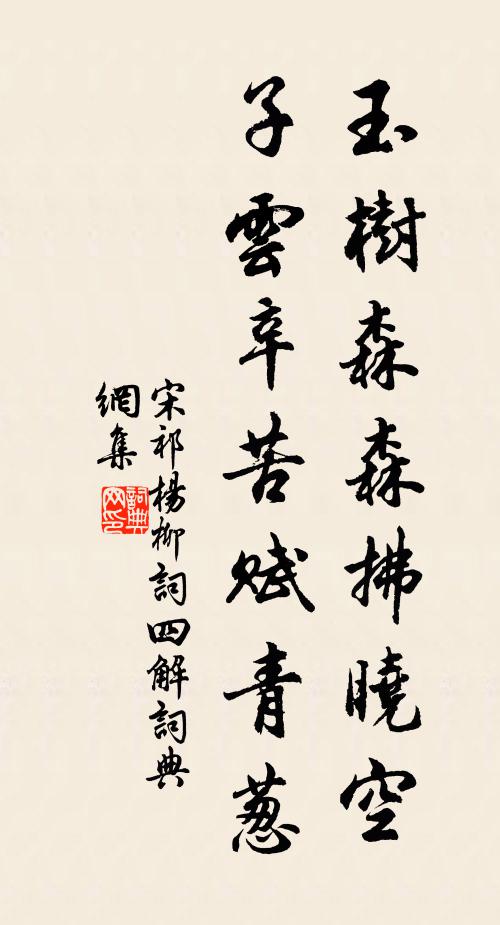 玉樹森森拂曉空
子雲辛苦賦青蔥
宋祁楊柳詞四解詞典
網集
詞典
网印